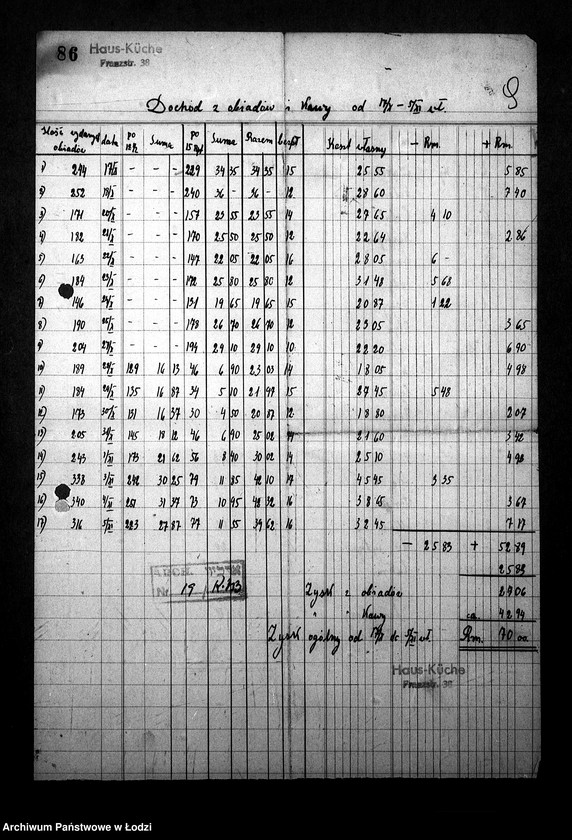 86 Haus-Küche
Franzstr. 38
Dochód z obiadów i kawy od 17/X – 5/XI wł.
Ilość wydanych obiadów data po 12½ Suma po 15 Suma Razem bezpł Koszt własny – Rm. + Rm.
1) 244 17/X – – – 229 34 35 34 35 15 25 55 5 85
2) 252 18/X – – – 240 36 – 36 – 12 28 60 7 40
3) 171 20/X – – – 157 23 55 23 55 14 27 65 4 10
4) 182 21/X – – – 170 25 50 25 50 12 22 64 2 86
5) 163 22/X – – – 147 22 05 22 05 16 28 05 6 –
6) 184 23/X – – – 172 25 80 25 80 12 31 48 5 68
7) 146 24/X – – – 131 19 65 19 65 15 20 87 1 22
8) 190 25/X – – – 178 26 70 26 70 12 23 05 3 65
9) 204 27/X – – – 194 29 10 29 10 10 22 20 6 90
10) 189 28/X 129 16 13 46 6 90 23 03 14 18 05 4 98
11) 184 29/X 135 16 87 34 5 10 21 97 15 27 45 5 48
12) 173 30/X 131 16 37 30 4 50 20 87 12 18 80 2 07
13) 205 31/X 145 18 12 46 6 90 25 02 14 21 60 3 42
14) 243 1/XI 173 21 62 56 8 40 30 02 14 25 10 4 92
15) 338 3/XI 242 30 25 79 11 85 42 10 17 45 45 3 35
16) 340 4/XI 251 31 37 73 10 95 42 32 16 38 65 3 67
17) 316 5/XI 223 27 87 77 11 55 39 42 16 32 45 7 17
– 25 83 + 52 89
25 83
Zysk z obiadów 27 06
" " kawy ca. 42 94
Zysk ogólny od 17/X do 5/XI wł. Rm. 70 00
ARCH.
Nr. 19
Haus-Küche
Franzstr. 38
Archiwum Państwowe w Łodzi